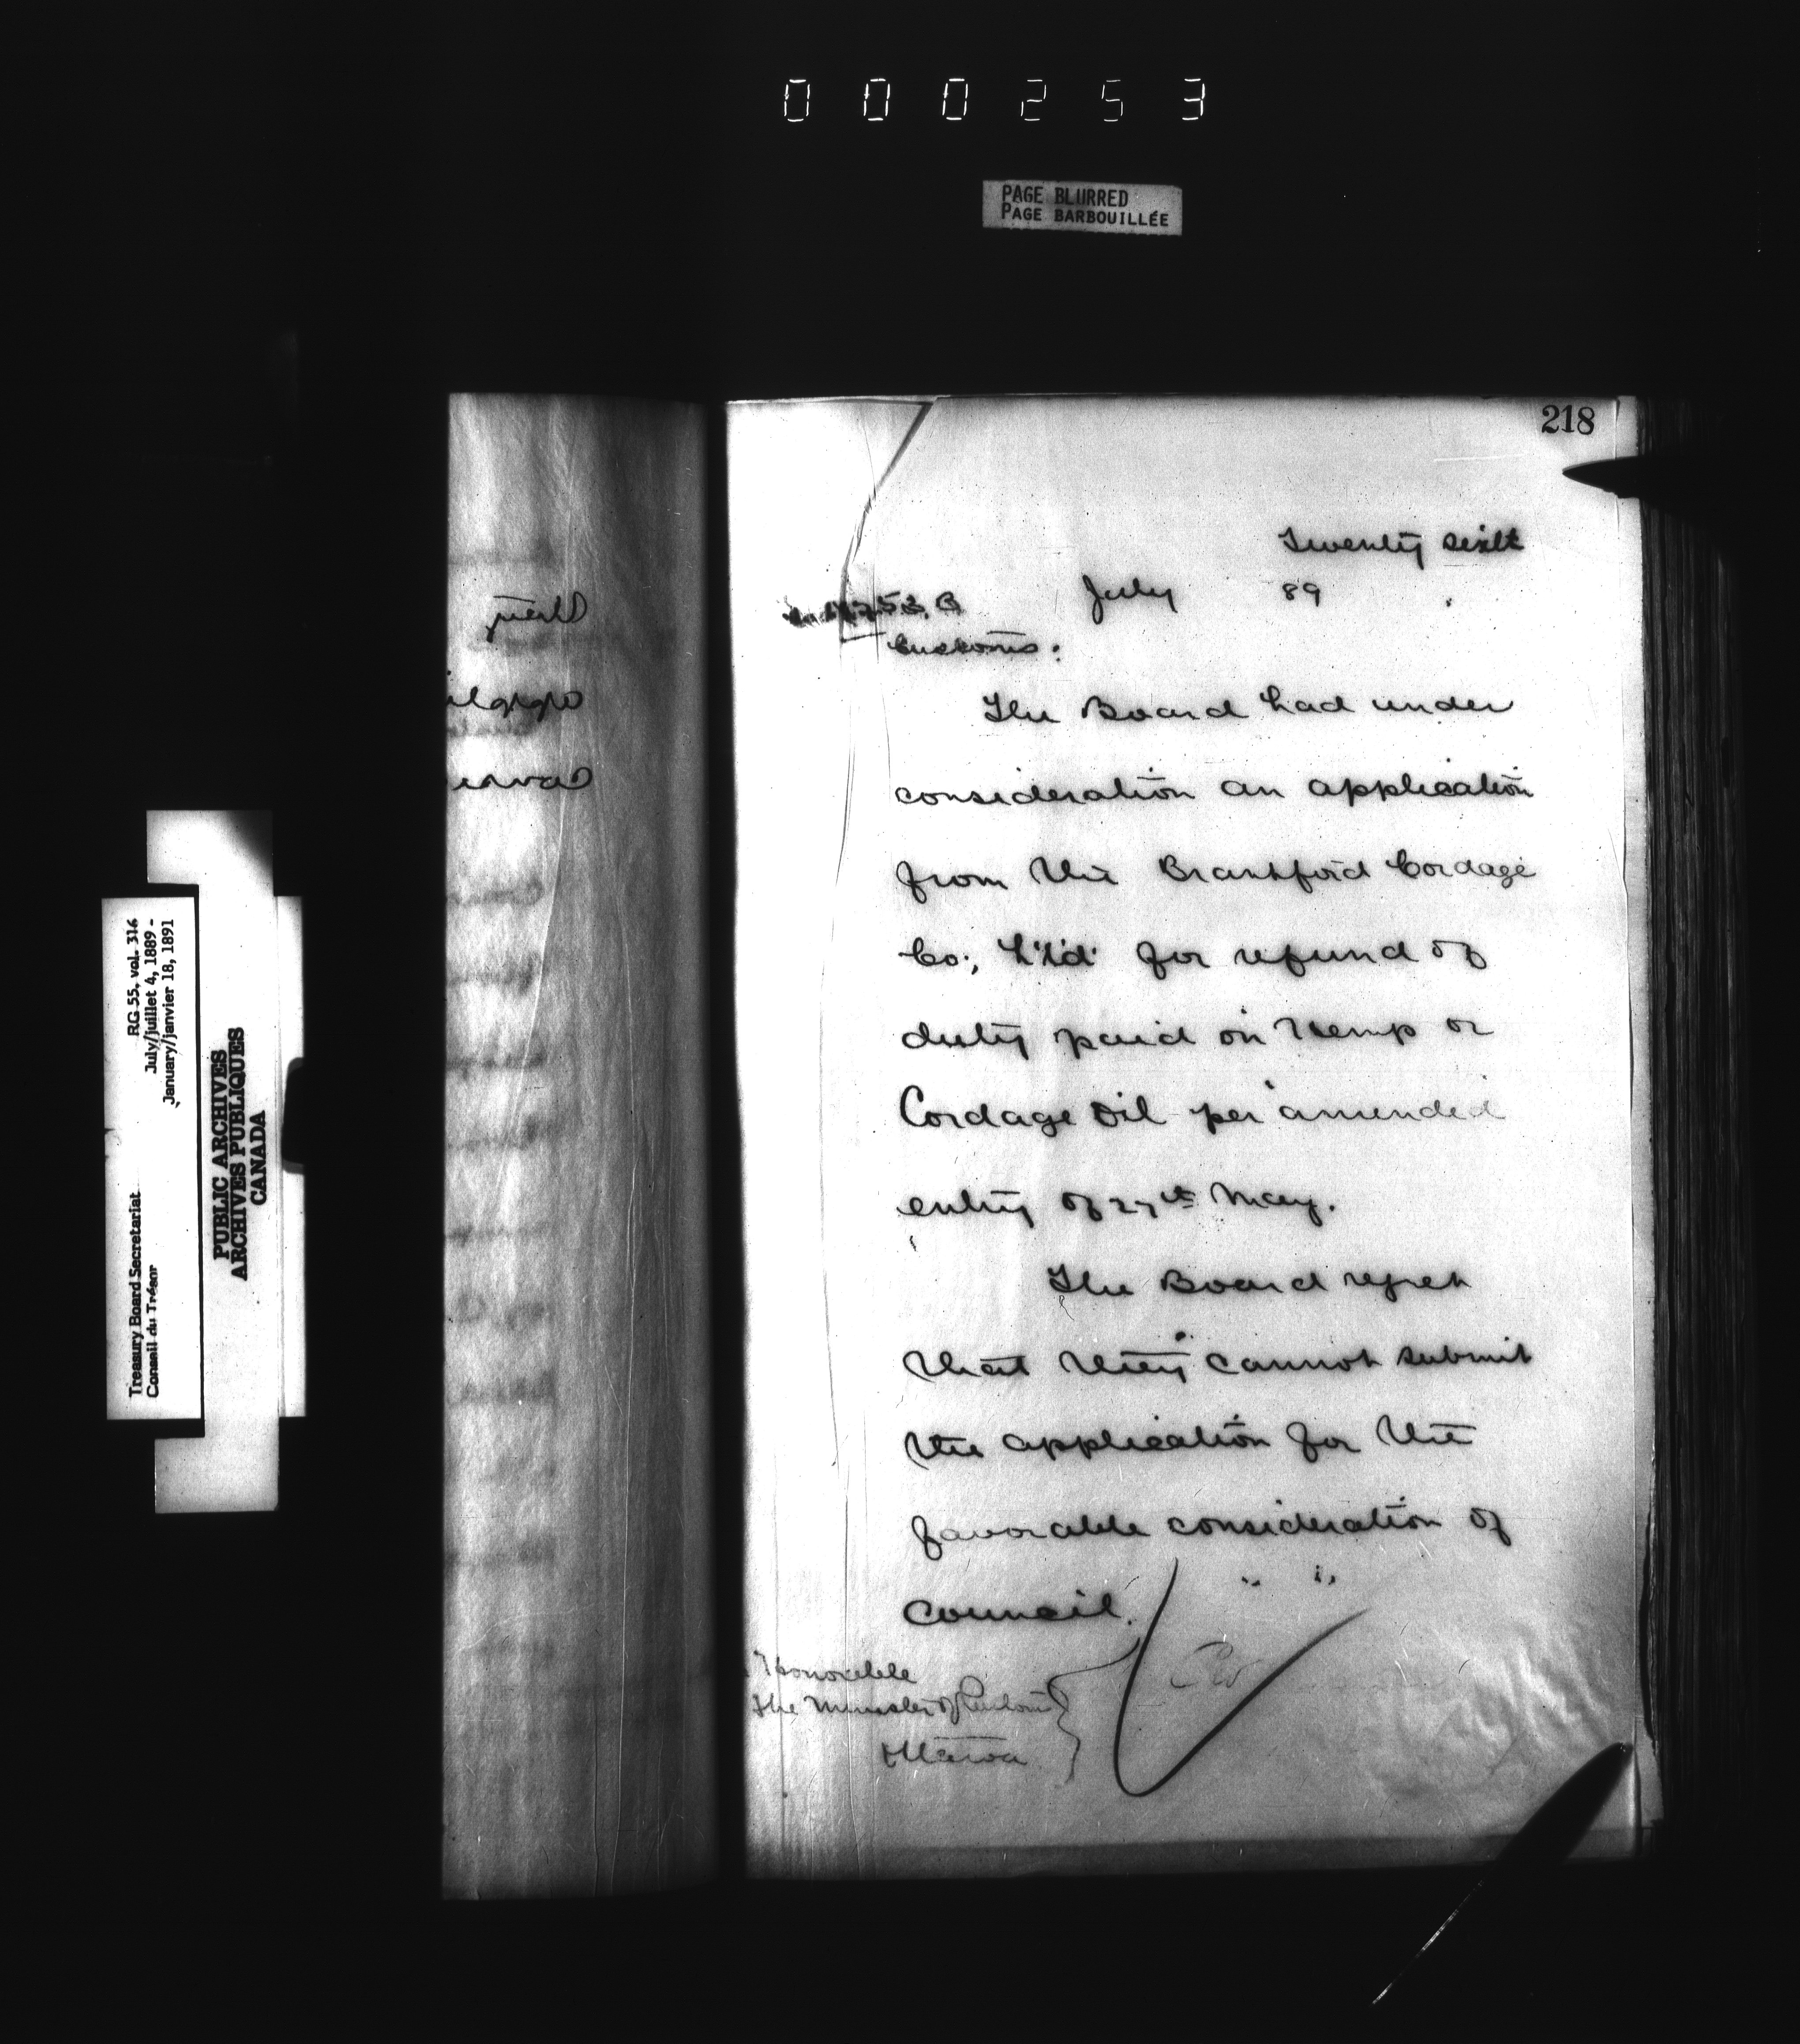 000253
PAGE BLURRED
PAGE BARBOUILLÉE
218
Twenty sixth
July 89
Customs:
The Board had under
consideration an application
from the Brantford Cordage
Co., L't'd' for refund of
duty paid on Hemp or
Cordage Oil per amended
entry of 27th May.
The Board regret
that they cannot submit
the application for the
favorable consideration of
Council.
Honorable
The Minister of Customs
Ottawa
RG 55, vol. 316
July/juillet 4, 1889 -
January/janvier 18, 1891
Treasury Board Secretariat
Conseil du Trésor
PUBLIC ARCHIVES
ARCHIVES PUBLIQUES
CANADA